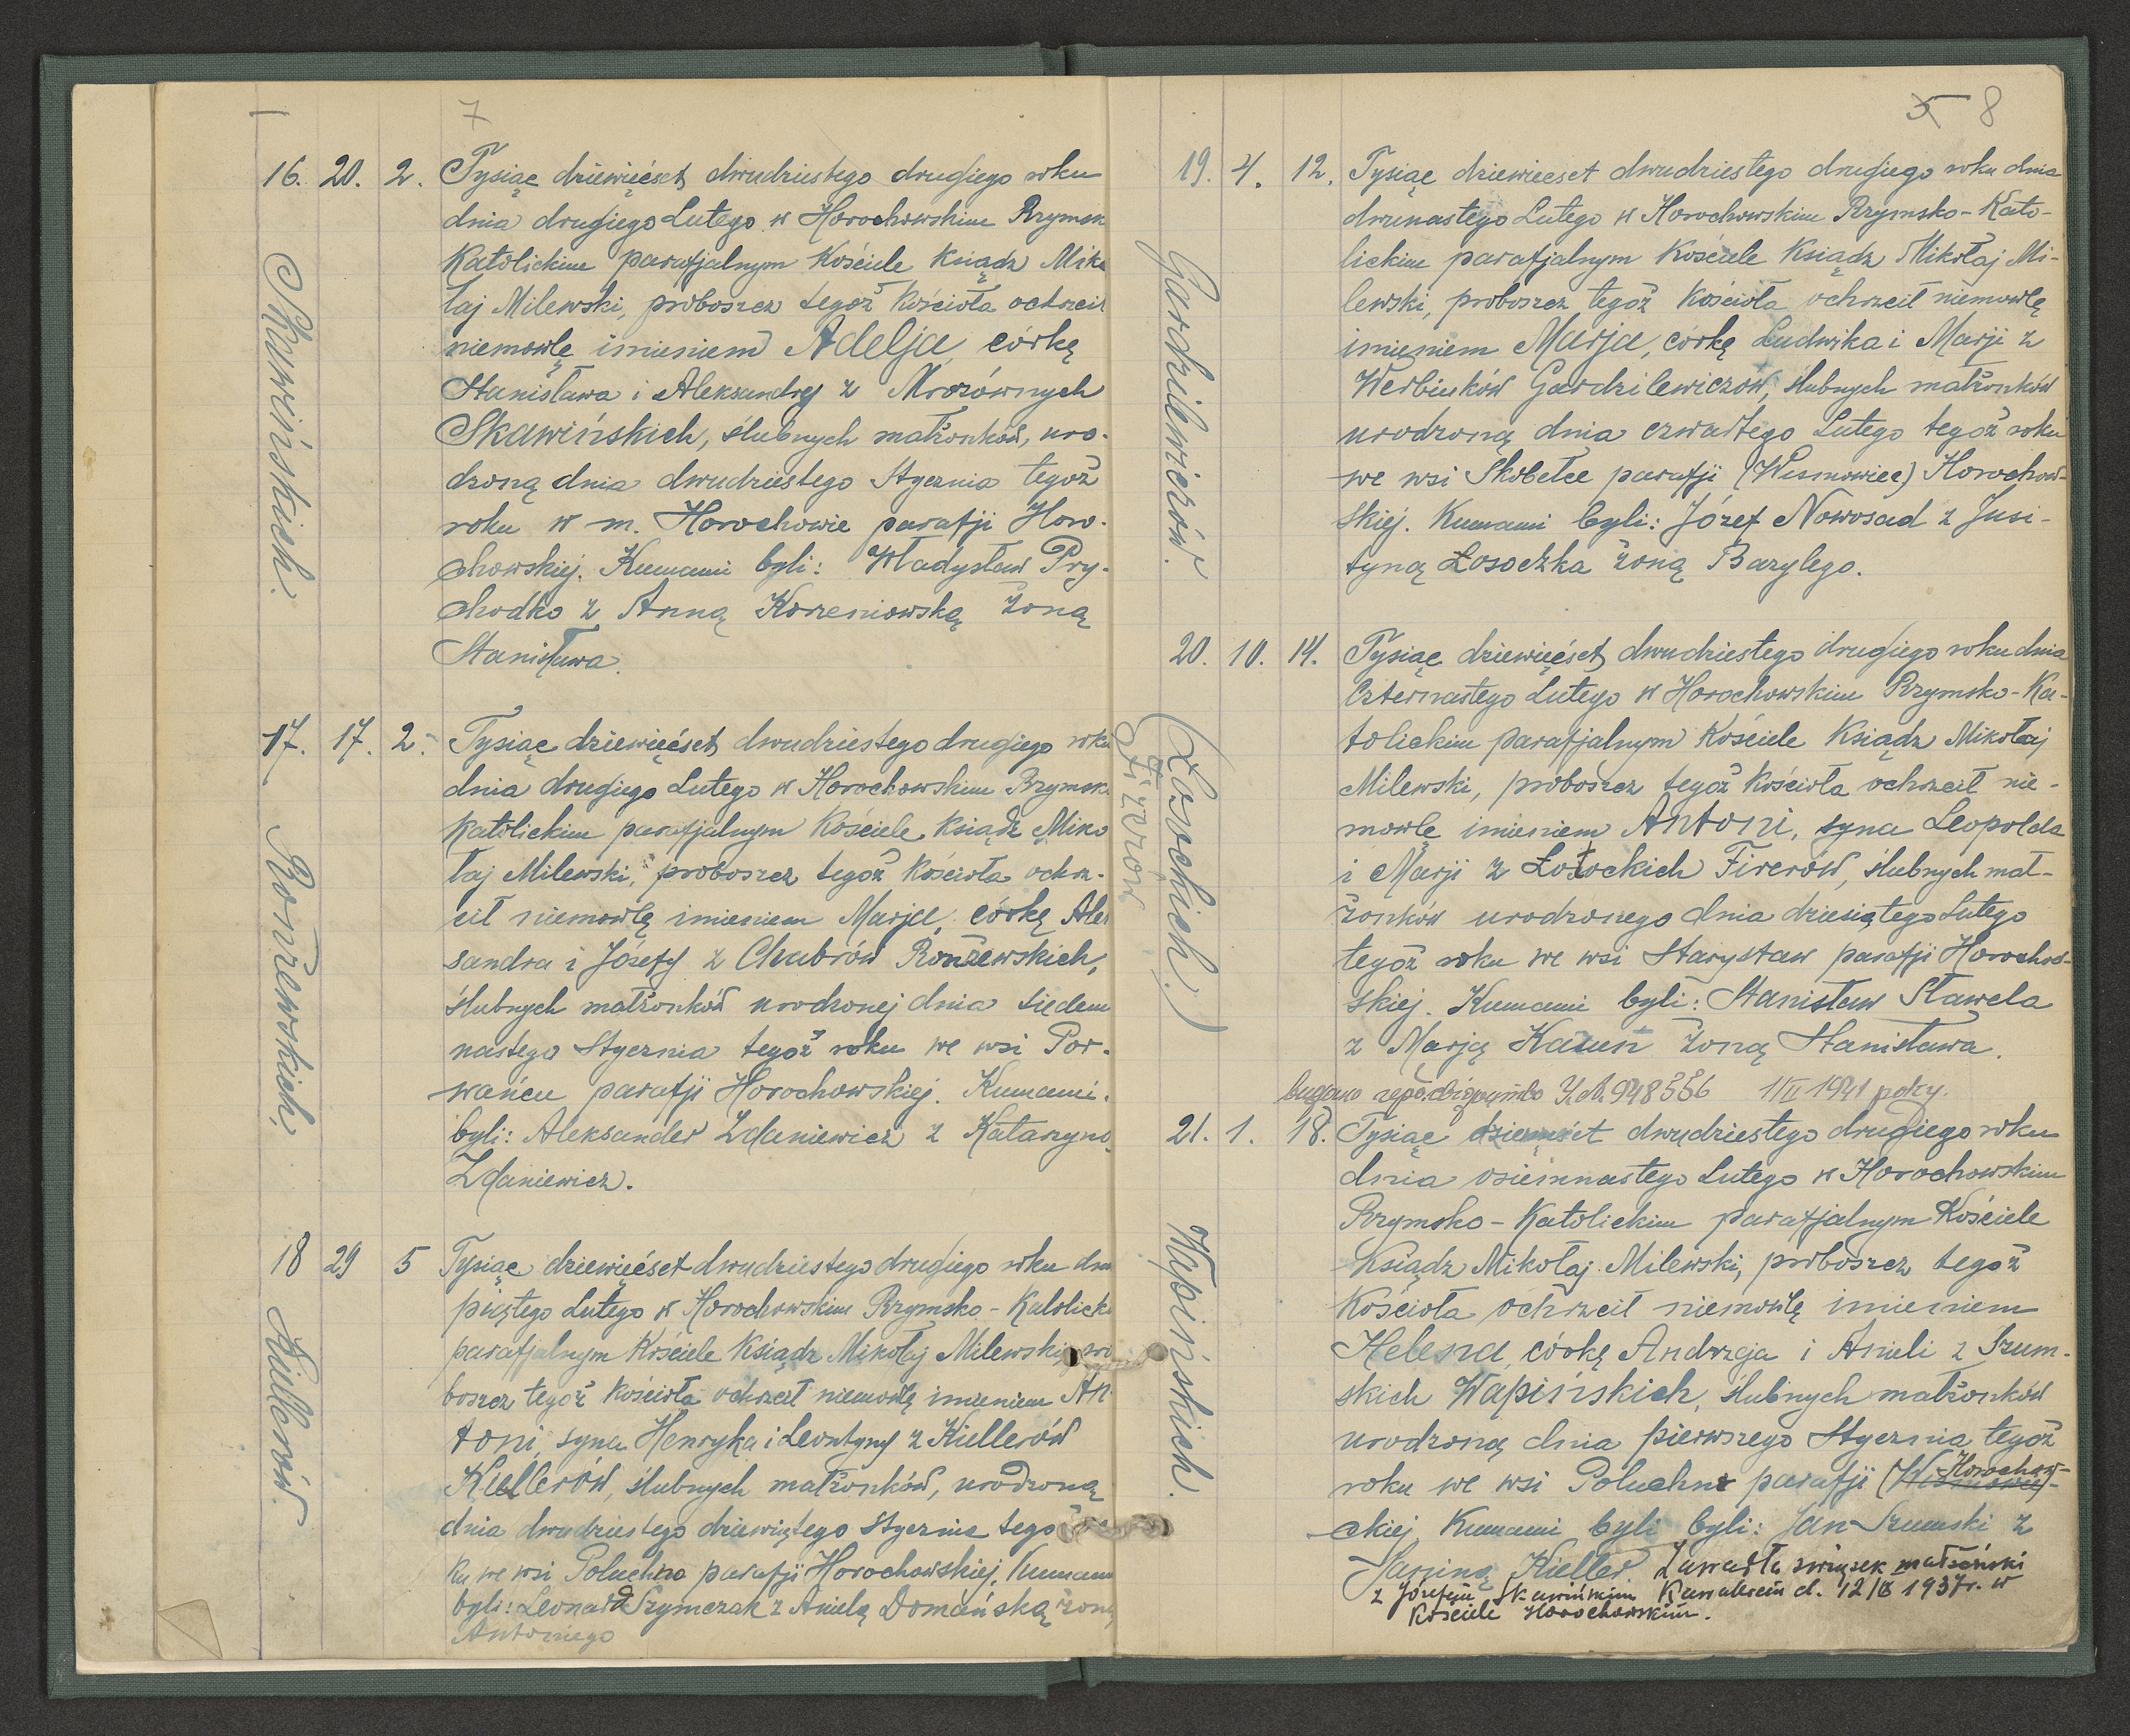 7
16. 20. 2. Tysiąc dziewięćset dwudziestego drugiego roku
dnia drugiego Lutego w Horochowskim Rzymsk
Katolickim parafjalnym Kościele Ksiądz Miko
łaj Milewski, proboszcz tegoż Kościoła ochrzcił
niemowlę imieniem Adelja, córkę
Stanisława i Aleksandry z Mrozównych
Skawińskich, ślubnych małżonków, uro-
dzoną dnia dwudziestego Stycznia tegoż
roku w m. Horochowie parafji Horo-
chowskiej. Kumami byli: Władysław Pry-
chodko z Anną Korzeniowską żoną
Stanisława.
Skawińskich.
17. 17. 2. Tysiąc dziewięćset dwudziestego drugiego roku
dnia drugiego Lutego w Horochowskim Rzymsk
Katolickim parafjalnym Kościele Ksiądz Miko
łaj Milewski, proboszcz tegoż Kościoła ochrz-
cił niemowlę imieniem Marja, córkę Alek
sandra i Józefy z Chabrów Ronżewskich,
ślubnych małżonków urodzonej dnia siedem
nastego Stycznia tegoż roku we wsi Por-
wańcu parafji Horochowskiej. Kumami.
byli: Aleksander Zdaniewicz z Kataryną
Zdaniewicz.
Ronżewskich.
18 29 5 Tysiąc dziewięćset dwudziestego drugiego roku dnia
piątego Lutego w Horochowskim Rzymsko-Katolicki
parafjalnym Kościele Ksiądz Mikołaj Milewski, pro
boszcz tegoż Kościoła ochrzcił niemowlę imieniem An-
toni, syna Henryka i Leontyny z Kiellerów
Kiellerów, ślubnych małżonków, urodzoną
dnia dwudziestego dziewiątego Stycznia tegoż ro
ku we wsi Poluchno parafji Horochowskiej. Kumami
byli: Leonard Szymczak z Anielą Domańską żoną
Antoniego
Kiellerów.
5 8
19. 4. 12. Tysiąc dziewięcset dwudziestego drugiego roku dnia
dwunastego Lutego w Horochowskim Rzymsko-Kato-
lickim parafjalnym Kościele Ksiądz Mikołaj Mi-
lewski, proboszcz tegoż Kościoła ochrzcił niemowlę
imieniem Marja, córkę Ludwika i Marji z
Werbiuków Gardzilewiczów, ślubnych małżonków
urodzoną dnia czwartego Lutego tegoż roku
we wsi Skobełce parafji (Wisniowiec) Horochow-
skiej. Kumami byli: Józef Nowosad z Jusi-
tyną Łosoczka żoną Bazylego.
Gardzilewiczów.
20. 10. 14. Tysiąc dziewięćset dwudziestego drugiego roku dnia
Czternastego Lutego w Horochowskim Rzymsko-Ka-
tolickim parafjalnym Kościele Ksiądz Mikołaj
Milewski, proboszcz tegoż Kościoła ochrzcił nie-
mowlę imieniem Antoni, syna Leopolda
i Marji z Łotockich Firerów, ślubnych mał-
żonków urodzonego dnia dziesiątego Lutego
tegoż roku we wsi Starystaw parafji Horochow-
skiej. Kumami byli: Stanisław Sławela
z Marją Kazuń żoną Stanisława.
(Łosockich.)
Firerów
видано УЛ 948556 1/II 1941 року.
21. 1. 18. Tysiąc dziewięćset dwudziestego drugiego roku
dnia osiemnastego Lutego w Horochowskim
Rzymsko-Katolickim parafjalnym Kościele
Ksiądz Mikołaj Milewski, proboszcz tegoż
Kościoła ochrzcił niemowlę imieniem
Helena, córkę Andrzeja i Anieli z Szum-
skich Wapińskich, ślubnych małżonków
urodzoną dnia pierwszego Stycznia tegoż
roku we wsi Poluchno parafji (Wisniowiec) Horochow-
skiej Kumami byli byli: Jan Szumski z
Janiną Kieller. Zawarła związek małżeński
z Józefem Skawińskim Kawalerem d. 12/II 1937 r. w
Kościele Horochowskim.
Wapińskich.